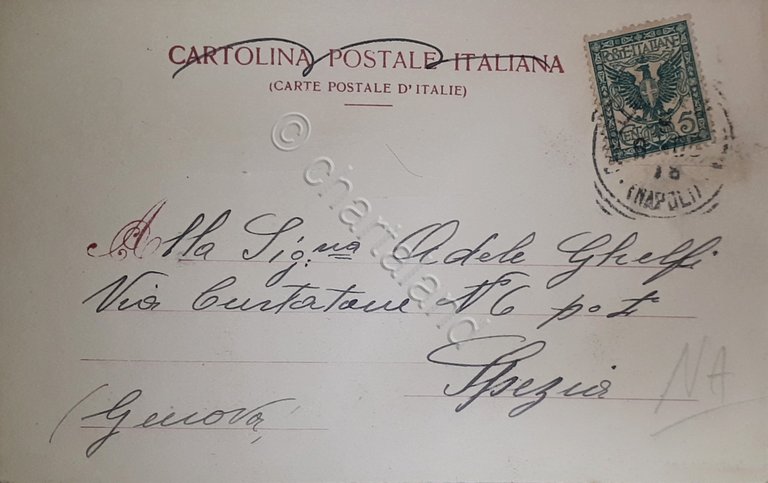 CARTOLINA POSTALE ITALIANA
(CARTE POSTALE D'ITALIE)
POSTE ITALIANE
5
18
(NAPOLI)
Alla Sig.na Adele Ghelfi
Via Curtatone N 6 po I
Spezia
(Genova)
NA
© chartaland